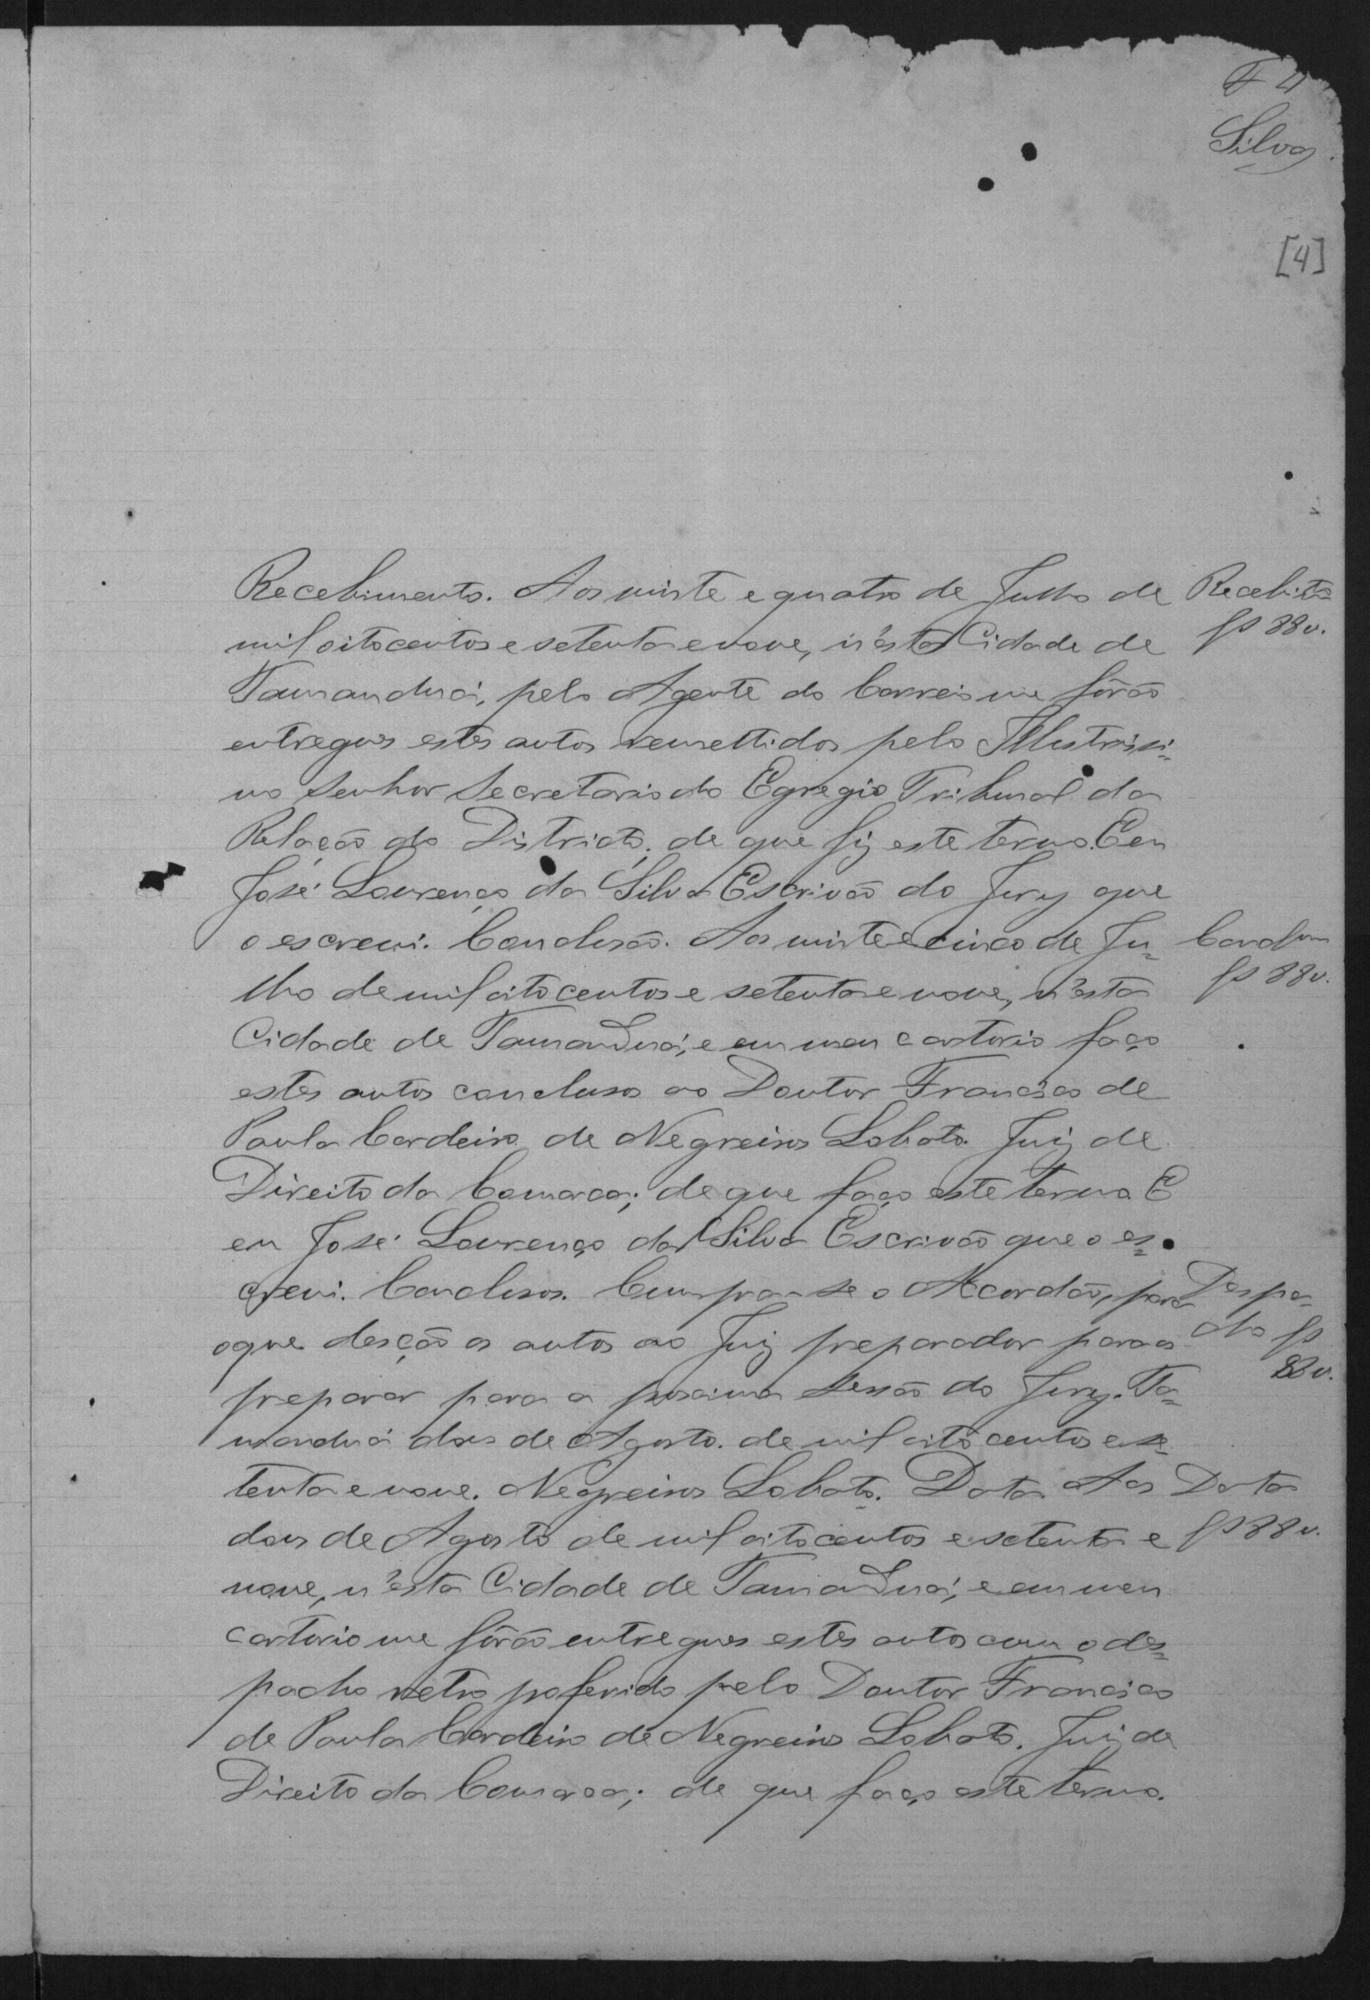 F 4
Silva.
[4]
Recebimento. Aos vinte e quatro de Julho de
Recebito
fs 88 v.
mil oitocentos e setenta e nove, n'esta Cidade de
Tamanduá, pelo Agente do Correio me forão
entregues estes autos remettidos pelo Illustrissi=
mo Senhor Secretario do Egregio Tribunal da
Relação do Districto, de que fiz este termo. E eu
José Lourenço da Silva Escrivão do Jury que
o escrevi. Conclusão. Aos vinte e cinco de Ju=
fs 88 v.
lho de mil oitocentos e setenta e nove, n'esta
Cidade de Tamanduá, e em meu cartorio faço
estes autos conclusos ao Doutor Francisco de
Paula Cordeiro de Negreiros Lobato Juiz de
Direito da Comarca; de que faço este termo E
eu José Lourenço da Silva Escrivão que o es=
crevi. Conclusos. Cumpra-se o Accordão, para
Despa=
cho fs
88 v.
o que desção os autos ao Juiz preparador para os
preparar para a proxima Sessão do Jury. Ta=
manduá dois de Agosto de mil oitocentos e se=
tenta e nove. Negreiros Lobato. Data Aos
Data
fs 88 v.
dois de Agosto de mil oitocentos e setenta e
nove, n'esta Cidade de Tamanduá, e em meu
cartorio me forão entregues estes autos com o des=
pacho retro proferido pelo Doutor Francisco
de Paula Cordeiro de Negreiros Lobato. Juiz de
Direito da Comarca; de que faço este termo.